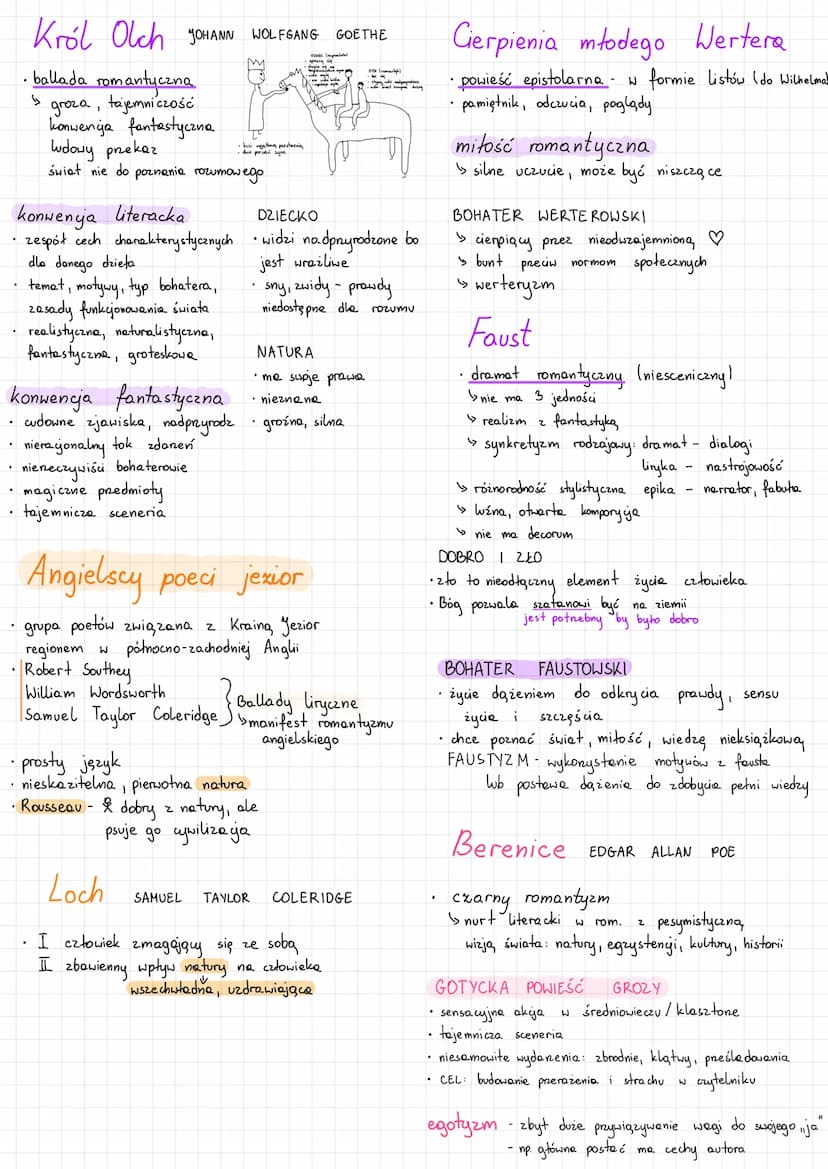 Król Olch JOHANN WOLFGANG GOETHE
· ballada romantyczna
↳ groza, tajemniczość
konwencja fantastyczna
ludowy przekaz
świat nie do poznania rozumowego
konwencja literacka
· zespół cech charakterystycznych
dla danego dzieła
· temat, motywy, typ bohatera,
zasady funkcjonowania świata
· realistyczna, naturalistyczna,
fantastyczna, groteskowa
konwencja fantastyczna
· cudowne zjawiska, nadprzyrodz
· nieracjonalny tok zdarzeń
· nierzeczywiści bohaterowie
· magiczne przedmioty
· tajemnicza sceneria
DZIECKO
· widzi nadprzyrodzone bo
jest wrażliwe
· sny, zwidy - prawdy
niedostępne dla rozumu
NATURA
· ma swoje prawa
· nieznana
· groźna, silna
Angielscy poeci jezior
· grupa poetów związana z Krainą Jezior
regionem w północno-zachodniej Anglii
· Robert Southey
William Wordsworth
Samuel Taylor Coleridge
Ballady liryczne
↳ manifest romantyzmu
angielskiego
· prosty język
· nieskazitelna, pierwotna natura
· Rousseau - dobry z natury, ale
psuje go cywilizacja
Loch SAMUEL TAYLOR COLERIDGE
· I człowiek zmagający się ze sobą
II zbawienny wpływ natury na człowieka
wszechwładna, uzdrawiająca
Cierpienia młodego Wertera
· powieść epistolarna - w formie listów (do Wilhelma)
· pamiętnik, odczucia, poglądy
miłość romantyczna
↳ silne uczucie, może być niszczące
BOHATER WERTEROWSKI
↳ cierpiący przez nieodwzajemnioną ♡
↳ bunt przeciw normom społecznych
↳ werteryzm
Faust
· dramat romantyczny (niesceniczny)
↳ nie ma 3 jedności
↳ realizm z fantastyką
↳ synkretyzm rodzajowy: dramat - dialogi
liryka - nastrojowość
↳ różnorodność stylistyczna epika - narrator, fabuła
↳ luźna, otwarta kompozycja
↳ nie ma decorum
DOBRO I ZŁO
· zło to nieodłączny element życia człowieka
· Bóg pozwala szatanowi być na ziemii
jest potrzebny by było dobro
BOHATER FAUSTOWSKI
· życie dążeniem do odkrycia prawdy, sensu
życia i szczęścia
· chce poznać świat, miłość, wiedzę nieksiążkową
FAUSTYZM - wykorzystanie motywów z fausta
lub postawa dążenia do zdobycia pełni wiedzy
Berenice EDGAR ALLAN POE
· czarny romantyzm
↳ nurt literacki w rom. z pesymistyczną
wizją świata: natury, egzystencji, kultury, historii
GOTYCKA POWIEŚĆ GROZY
· sensacyjna akcja w średniowieczu / klasztorze
· tajemnicza sceneria
· niesamowite wydarzenia: zbrodnie, klątwy, prześladowania
· CEL: budowanie przerażenia i strachu w czytelniku
egotyzm - zbyt duże przywiązywanie wagi do swojego „ja"
- np. główna postać ma cechy autora